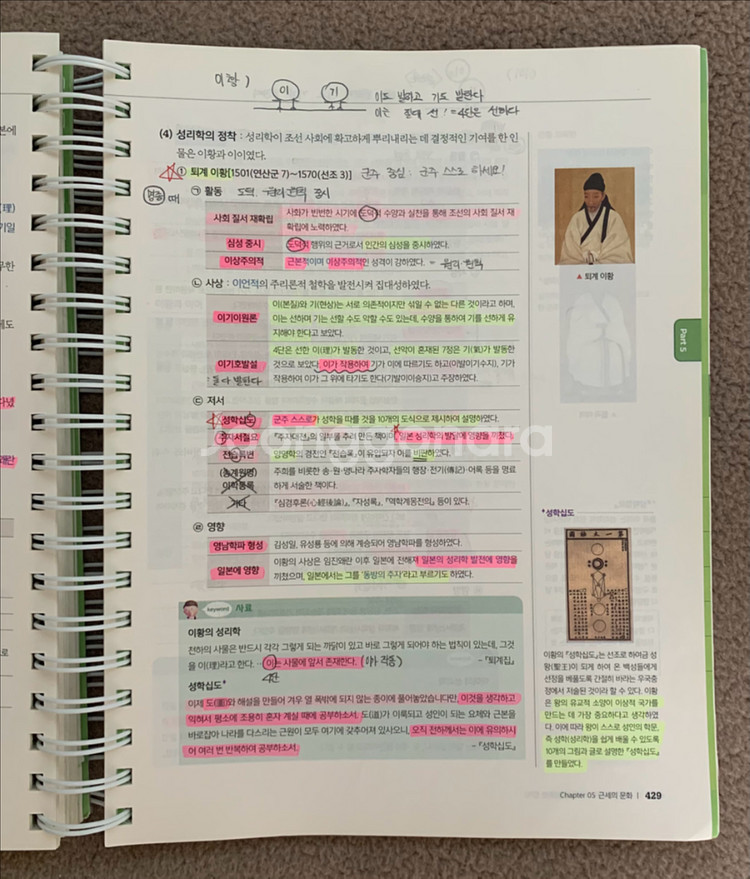 이황)
이 기
이도 발하고 기도 발한다
이는 절대 선! = 4단은 선하다
(4) 성리학의 정착 : 성리학이 조선 사회에 확고하게 뿌리내리는 데 결정적인 기여를 한 인
물은 이황과 이이였다.
① 퇴계 이황[1501(연산군 7)~1570(선조 3)] 군주 중심 : 군주 스스로 하세요!
명종 때 ㉠ 활동 도덕 · 원리원칙 중시
사회 질서 재확립 사화가 빈번한 시기에 도덕적 수양과 실천을 통해 조선의 사회 질서 재
확립에 노력하였다.
심성 중시 도덕적 행위의 근거로서 인간의 심성을 중시하였다.
이상주의적 근본적이며 이상주의적인 성격이 강하였다. = 원리 원칙
㉡ 사상 : 이언적의 주리론적 철학을 발전시켜 집대성하였다.
이기이원론 이(본질)와 기(현상)는 서로 의존적이지만 섞일 수 없는 다른 것이라고 하며,
이는 선하며 기는 선할 수도 악할 수도 있는데, 수양을 통하여 기를 선하게 유
지해야 한다고 보았다.
이기호발설 4단은 선한 이(理)가 발동한 것이고, 선악이 혼재된 7정은 기(氣)가 발동한
것으로 보았다. 이가 작용하여 기가 이에 따르기도 하고(이발이기수지), 기가
둘 다 발한다 작용하여 이가 그 위에 타기도 한다(기발이이승지)고 주장하였다.
㉢ 저서
성학십도 군주 스스로가 성학을 따를 것을 10개의 도식으로 제시하여 설명하였다.
주자서절요 『주자대전』의 일부를 추려 만든 책이며 일본 성리학의 발달에 영향을 끼쳤다.
전습록변 양명학의 경전인 『전습록』이 유입되자 이를 비판하였다.
(송계원명) 주희를 비롯한 송·원·명나라 주자학자들의 행장·전기(傳記)·어록 등을 명료
이학통록 하게 서술한 책이다.
기타 『심경후론(心經後論)』, 『자성록』, 『역학계몽전의』 등이 있다.
㉣ 영향
영남학파 형성 김성일, 유성룡 등에 의해 계승되어 영남학파를 형성하였다.
일본에 영향 이황의 사상은 임진왜란 이후 일본에 전해져 일본의 성리학 발전에 영향을
끼쳤으며, 일본에서는 그를 '동방의 주자'라고 부르기도 하였다.
keyword 사료
이황의 성리학
천하의 사물은 반드시 각각 그렇게 되는 까닭이 있고 바로 그렇게 되어야 하는 법칙이 있는데, 그것
을 이(理)라고 한다. … 이는 사물에 앞서 존재한다. - 『퇴계집』
4단
성학십도
이제 도(圖)와 해설을 만들어 겨우 열 폭밖에 되지 않는 종이에 풀어놓았습니다만, 이것을 생각하고
익혀서 평소에 조용히 혼자 계실 때에 공부하소서. 도(道)가 이룩되고 성인이 되는 요체와 근본을
바로잡아 나라를 다스리는 근원이 모두 여기에 갖추어져 있사오니, 오직 전하께서는 이에 유의하시
어 여러 번 반복하여 공부하소서. - 『성학십도』
▲ 퇴계 이황
Part 5
성학십도
이황의 『성학십도』는 선조로 하여금 성
왕(聖王)이 되게 하여 온 백성들에게
선정을 베풀도록 간절히 바라는 우국충
정에서 저술된 것이라 할 수 있다. 이황
은 왕의 유교적 소양이 이상적 국가를
만드는 데 가장 중요하다고 생각하였
다. 이에 따라 왕이 스스로 성인의 학문,
즉 성학(성리학)을 쉽게 배울 수 있도록
10개의 그림과 글로 설명한 『성학십도』
를 만들었다.
Chapter 05 근세의 문화 | 429